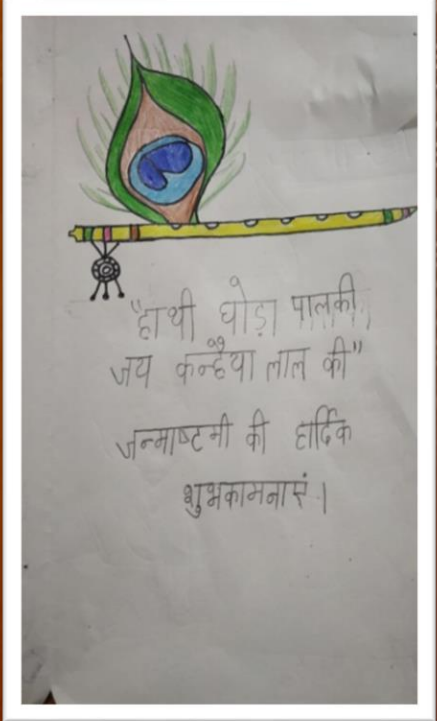 "हाथी घोड़ा पालकी
जय कन्हैया लाल की"
जन्माष्टमी की हार्दिक
शुभकामनाएं।